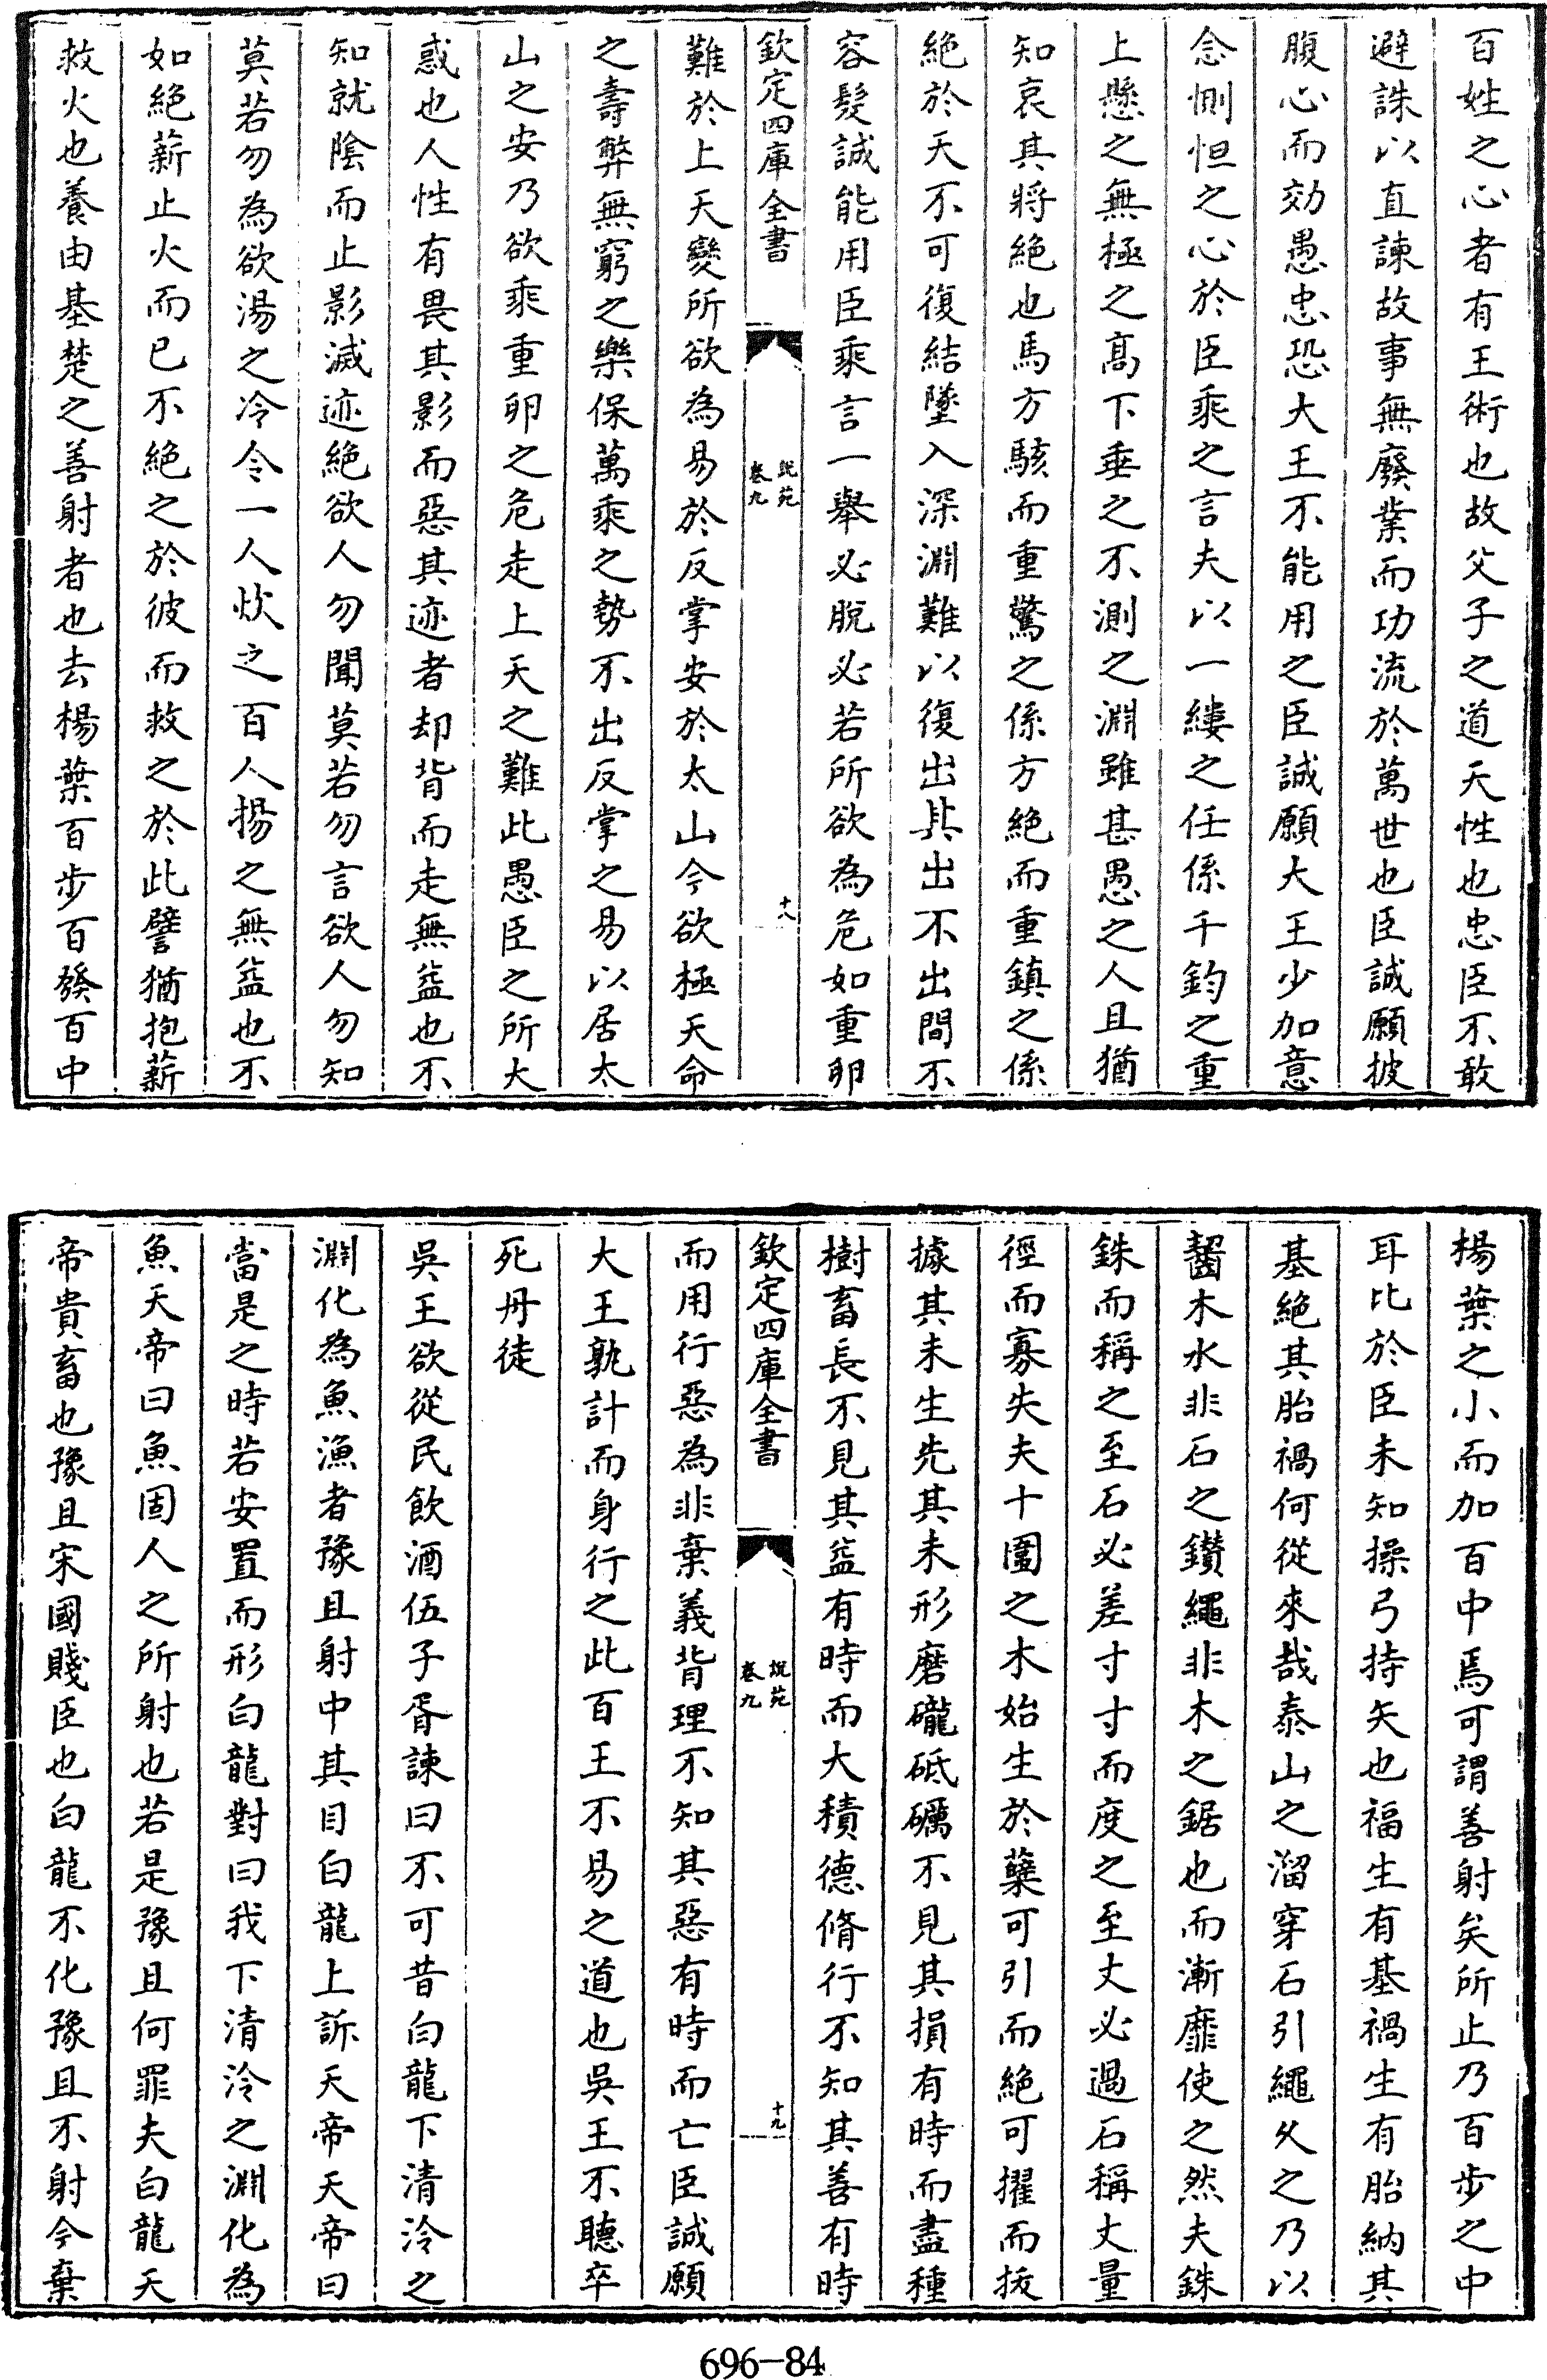 百姓之心者有王術也故父子之道天性也忠臣不敢
避誅以直諫故事無廢業而功流於萬世也臣誠願披
腹心而効愚忠恐大王不能用之臣誠願大王少加意
念惻怛之心於臣乘之言夫以一縷之任係千鈞之重
上懸之無極之髙下垂之不測之淵雖甚愚之人且猶
知哀其將絶也馬方駭而重驚之係方絶而重鎮之係
絶於天不可復結墜入深淵難以復出其出不出間不
容髮誠能用臣乘言一舉必脫必若所欲為危如重卵
欽定四庫全書
說苑
卷九
十八
難於上天變所欲為易於反掌安於太山今欲極天命
之壽弊無窮之樂保萬乘之勢不出反掌之易以居太
山之安乃欲乘重卵之危走上天之難此愚臣之所大
惑也人性有畏其影而惡其迹者却背而走無益也不
知就陰而止影滅迹絶欲人勿聞莫若勿言欲人勿知
莫若勿為欲湯之冷令一人炊之百人揚之無益也不
如絶薪止火而已不絶之於彼而救之於此譬猶抱薪
救火也養由基楚之善射者也去楊葉百步百發百中
楊葉之小而加百中焉可謂善射矣所止乃百步之中
耳比於臣未知操弓持矢也福生有基禍生有胎納其
基絶其胎禍何從來哉泰山之溜穿石引繩久之乃以
齧木水非石之鑚繩非木之鋸也而漸靡使之然夫銖
銖而稱之至石必差寸寸而度之至丈必過石稱丈量
徑而寡失夫十圍之木始生於蘖可引而絶可擢而拔
據其未生先其未形磨礲砥礪不見其損有時而盡種
樹畜長不見其益有時而大積德脩行不知其善有時
欽定四庫全書
說苑
卷九
十九
而用行惡為非棄義背理不知其惡有時而亡臣誠願
大王孰計而身行之此百王不易之道也吳王不聽卒
死丹徒
吳王欲從民飲酒伍子胥諫曰不可昔白龍下清泠之
淵化為魚漁者豫且射中其目白龍上訴天帝天帝曰
當是之時若安置而形白龍對曰我下清泠之淵化為
魚天帝曰魚固人之所射也若是豫且何罪夫白龍天
帝貴畜也豫且宋國賤臣也白龍不化豫且不射今棄
696-84